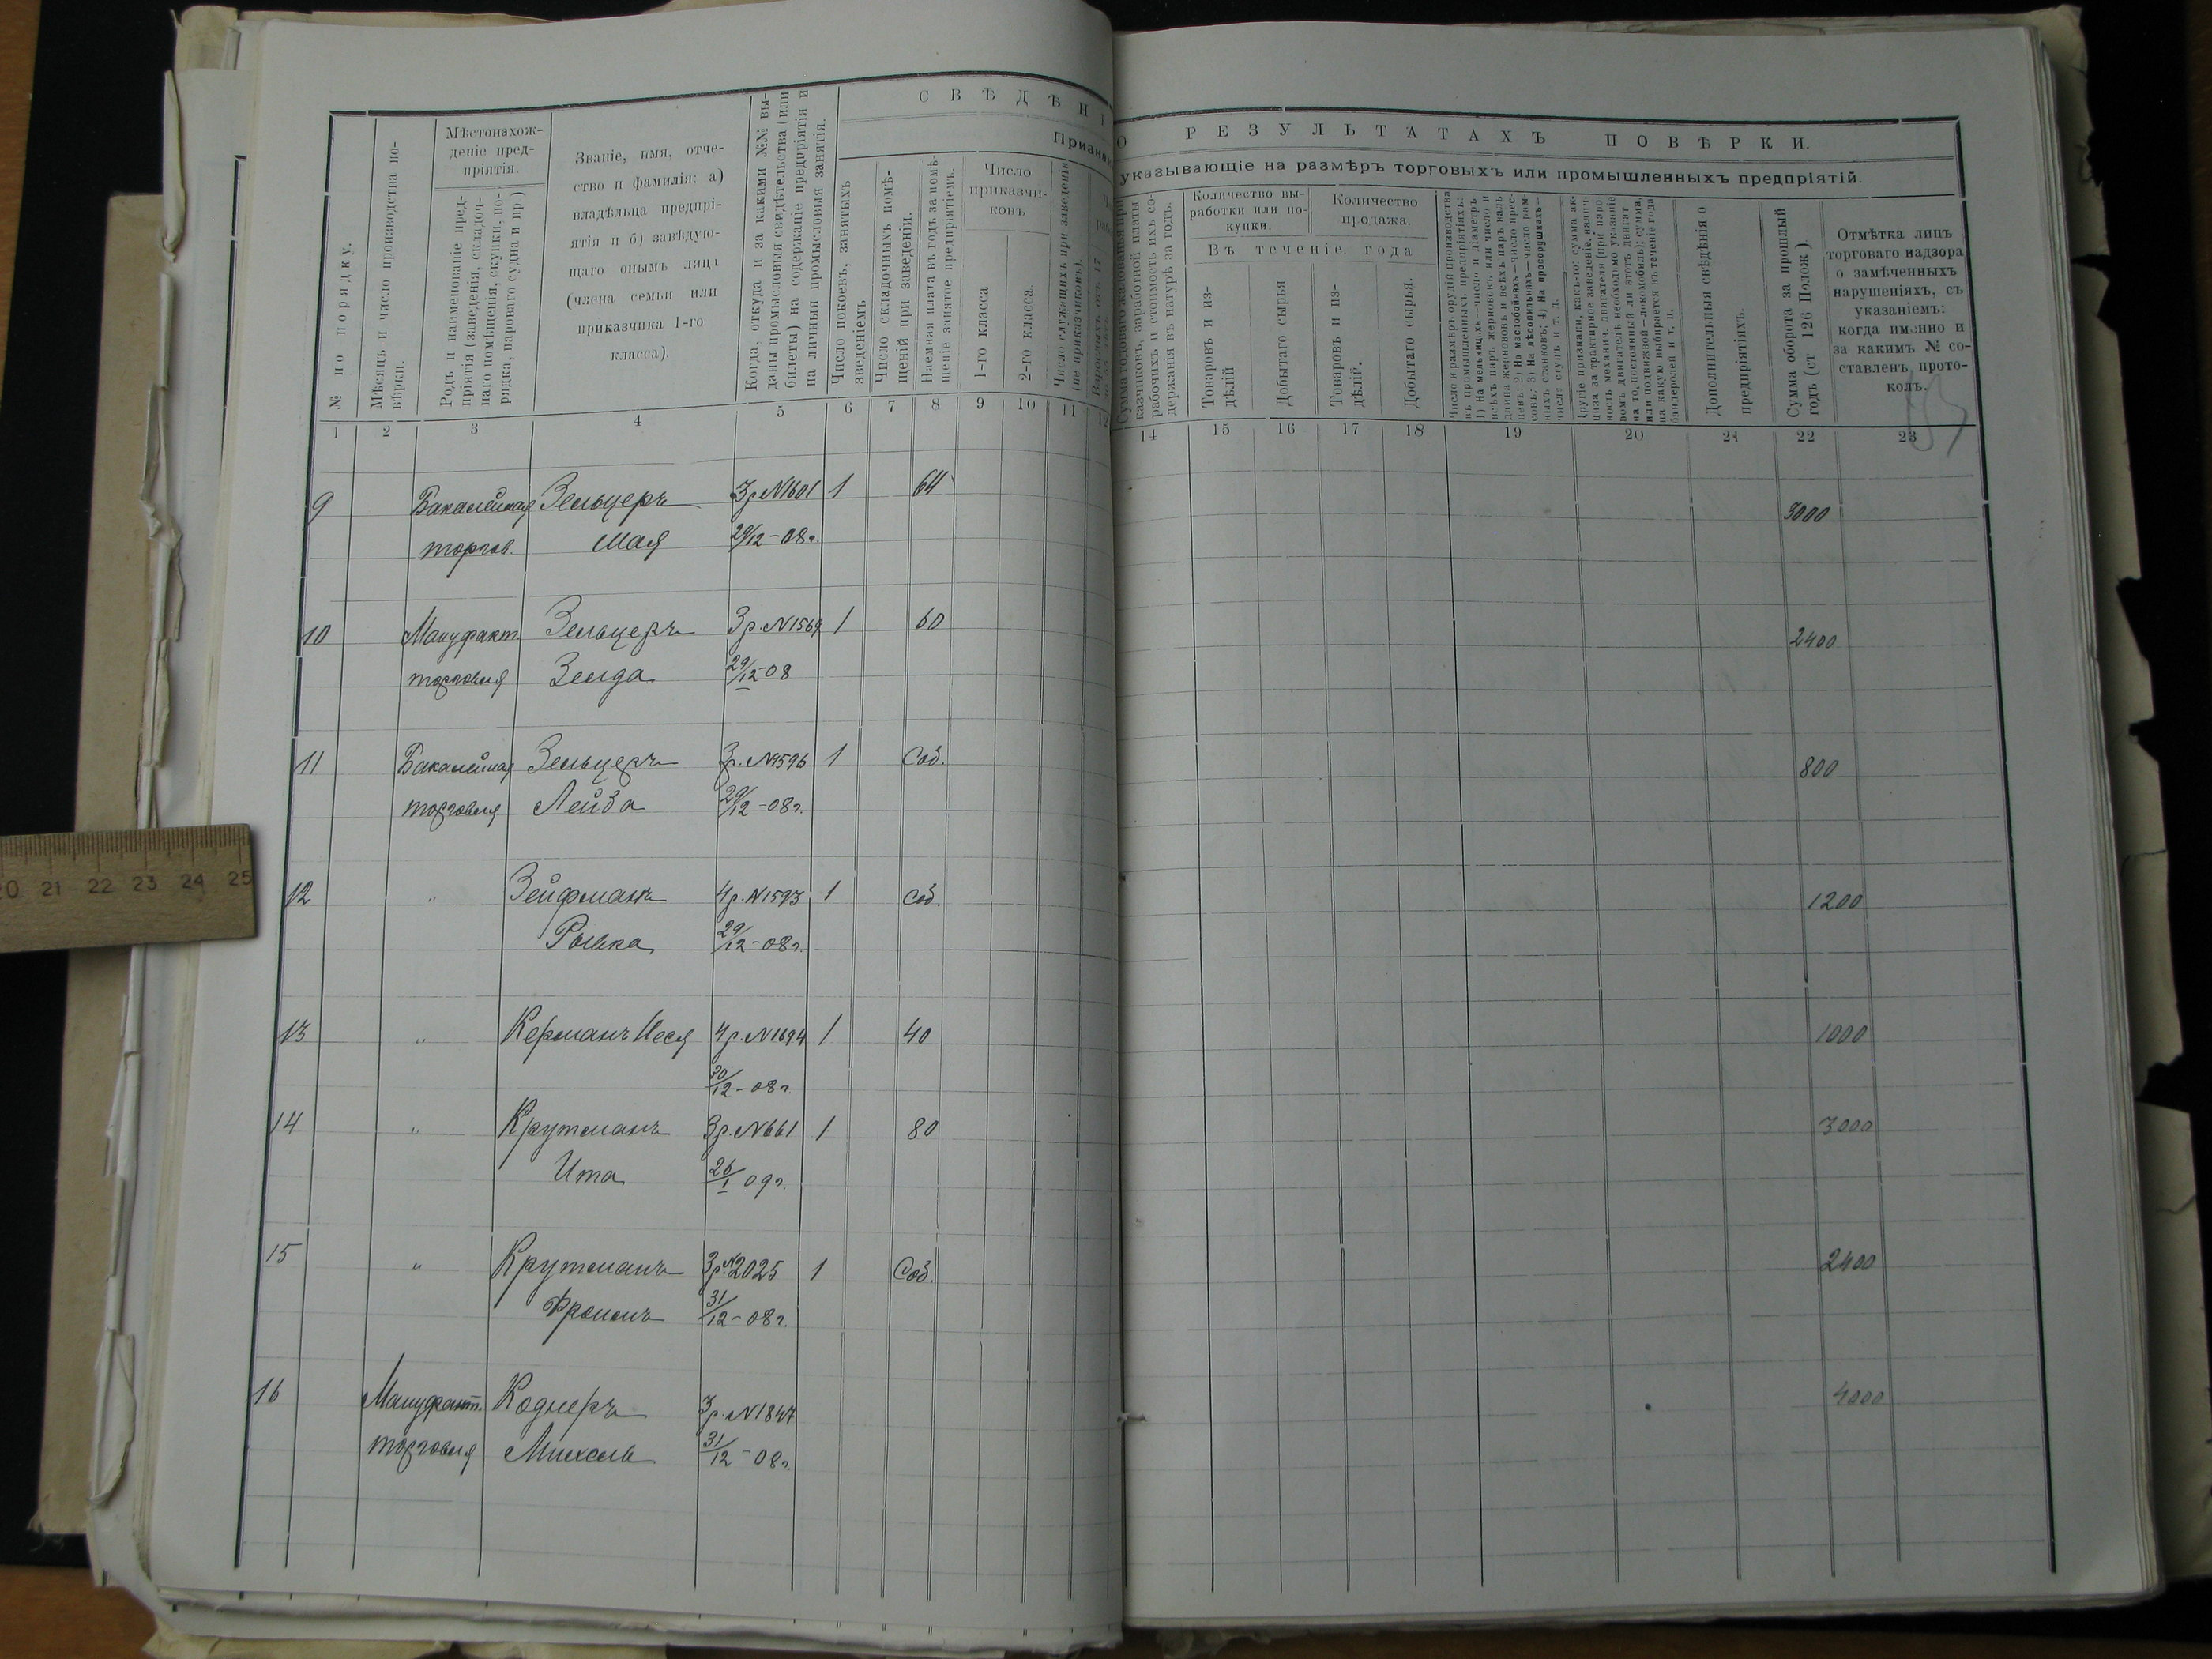 С В Ѣ Д Ѣ Н І
О РЕЗУЛЬТАТАХЪ ПОВѢРКИ.
Признаки
указывающіе на размѣръ торговыхъ или промышленныхъ предпріятій.
№ по порядку.
Мѣсяцъ и число производства по-
вѣрки.
Мѣстонахож-
деніе пред-
пріятія.
Родъ и наименованіе пред-
пріятія (заведенія, складоч-
наго помѣщенія, скупки, по-
рядка, парового судна и пр )
Званіе, имя, отче-
ство и фамилія: а)
владѣльца предпрі-
ятія и б) завѣдую-
щаго онымъ лица
(члена семьи или
приказчика 1-го
класса).
Когда, откуда и за какими №№ вы-
даны промысловыя свидѣтельства (или
билеты) на содержаніе предпріятія и
на личныя промысловыя занятія.
Число покоевъ, занятыхъ
зведеніемъ
Число складочныхъ помѣ-
щеній при заведеніи.
Наемная плата въ годъ за помѣ-
щеніе занятое предпріятіемъ.
Число
приказчи-
ковъ
1-го класса
2-го класса.
Число служащихъ при заведеніи
(не приказчиковъ).
Сумма годоваго жалованья при-
казчиковъ, заработной платы
рабочихъ и стоимость ихъ со-
держанія въ натурѣ за годъ.
Количество вы-
работки или по-
купки.
Количество
продажа.
Въ теченіе года
Товаровъ и из-
дѣлій
Добытаго сырья
Товаровъ и из-
дѣлій.
Добытаго сырья.
Число и размѣръ орудій производства
въ промышленныхъ предпріятіяхъ:
1) На мельницахъ—число и діаметръ
всѣхъ паръ жернововъ или число и
длина жернововъ и всѣхъ паръ валь-
цевъ: 2) На маслобойняхъ—число прес-
совъ: 3) На лѣсопильняхъ—число рам-
ныхъ станковъ; 4) На просорушкахъ—
число ступъ и т. д.
Другіе признаки, какъ-то: сумма ак-
циза за трактирное заведеніе, налич-
ность механич. двигателя (при паро-
вомъ двигателѣ необходимо указаніе
на то, постоянный ли этотъ двигат
или подвижной—локомобиль); сумма,
на какую выбирается въ теченіе года
бандеролей и т. п.
Дополнительныя свѣдѣнія о
предпріятіяхъ.
Сумма оборота за прошлый
годъ (ст 126 Полож )
Отмѣтка лицъ
торговаго надзора
о замѣченныхъ
нарушеніяхъ, съ
указаніемъ:
когда именно и
за какимъ № со-
ставленъ прото-
колъ.
1 2 3 4 5 6 7 8 9 10 11 12 14 15 16 17 18 19 20 21 22 23
9 Бакалейная Зельцеръ 3р №1601 1 64 3000
торгов. Мая 29/12-08г.
10 Мануфакт. Зельцеръ 3р. №1569 1 60 2400
торговля Зелда 29/12-08
11 Бакалейная Зельцеръ 3р. №1596 1 Соб. 800
торговля Лейба 29/12-08г.
12 " Зейфманъ 4р. №1593 1 Соб. 1200
Рывка 29/12-08г.
13 " Керманъ Неся 4р. №1694 1 40 1000
30/12-08г.
14 " Крутманъ 3р. №661 1 80 3000
Ита 26/1 09г.
15 " Крутманъ 3р. №2025 1 Соб. 2400
Фроимъ 31/12-08г.
16 Мануфакт. Коднеръ 3р. №1847 4000
торговля Михель 31/12-08г.
20 21 22 23 24 25